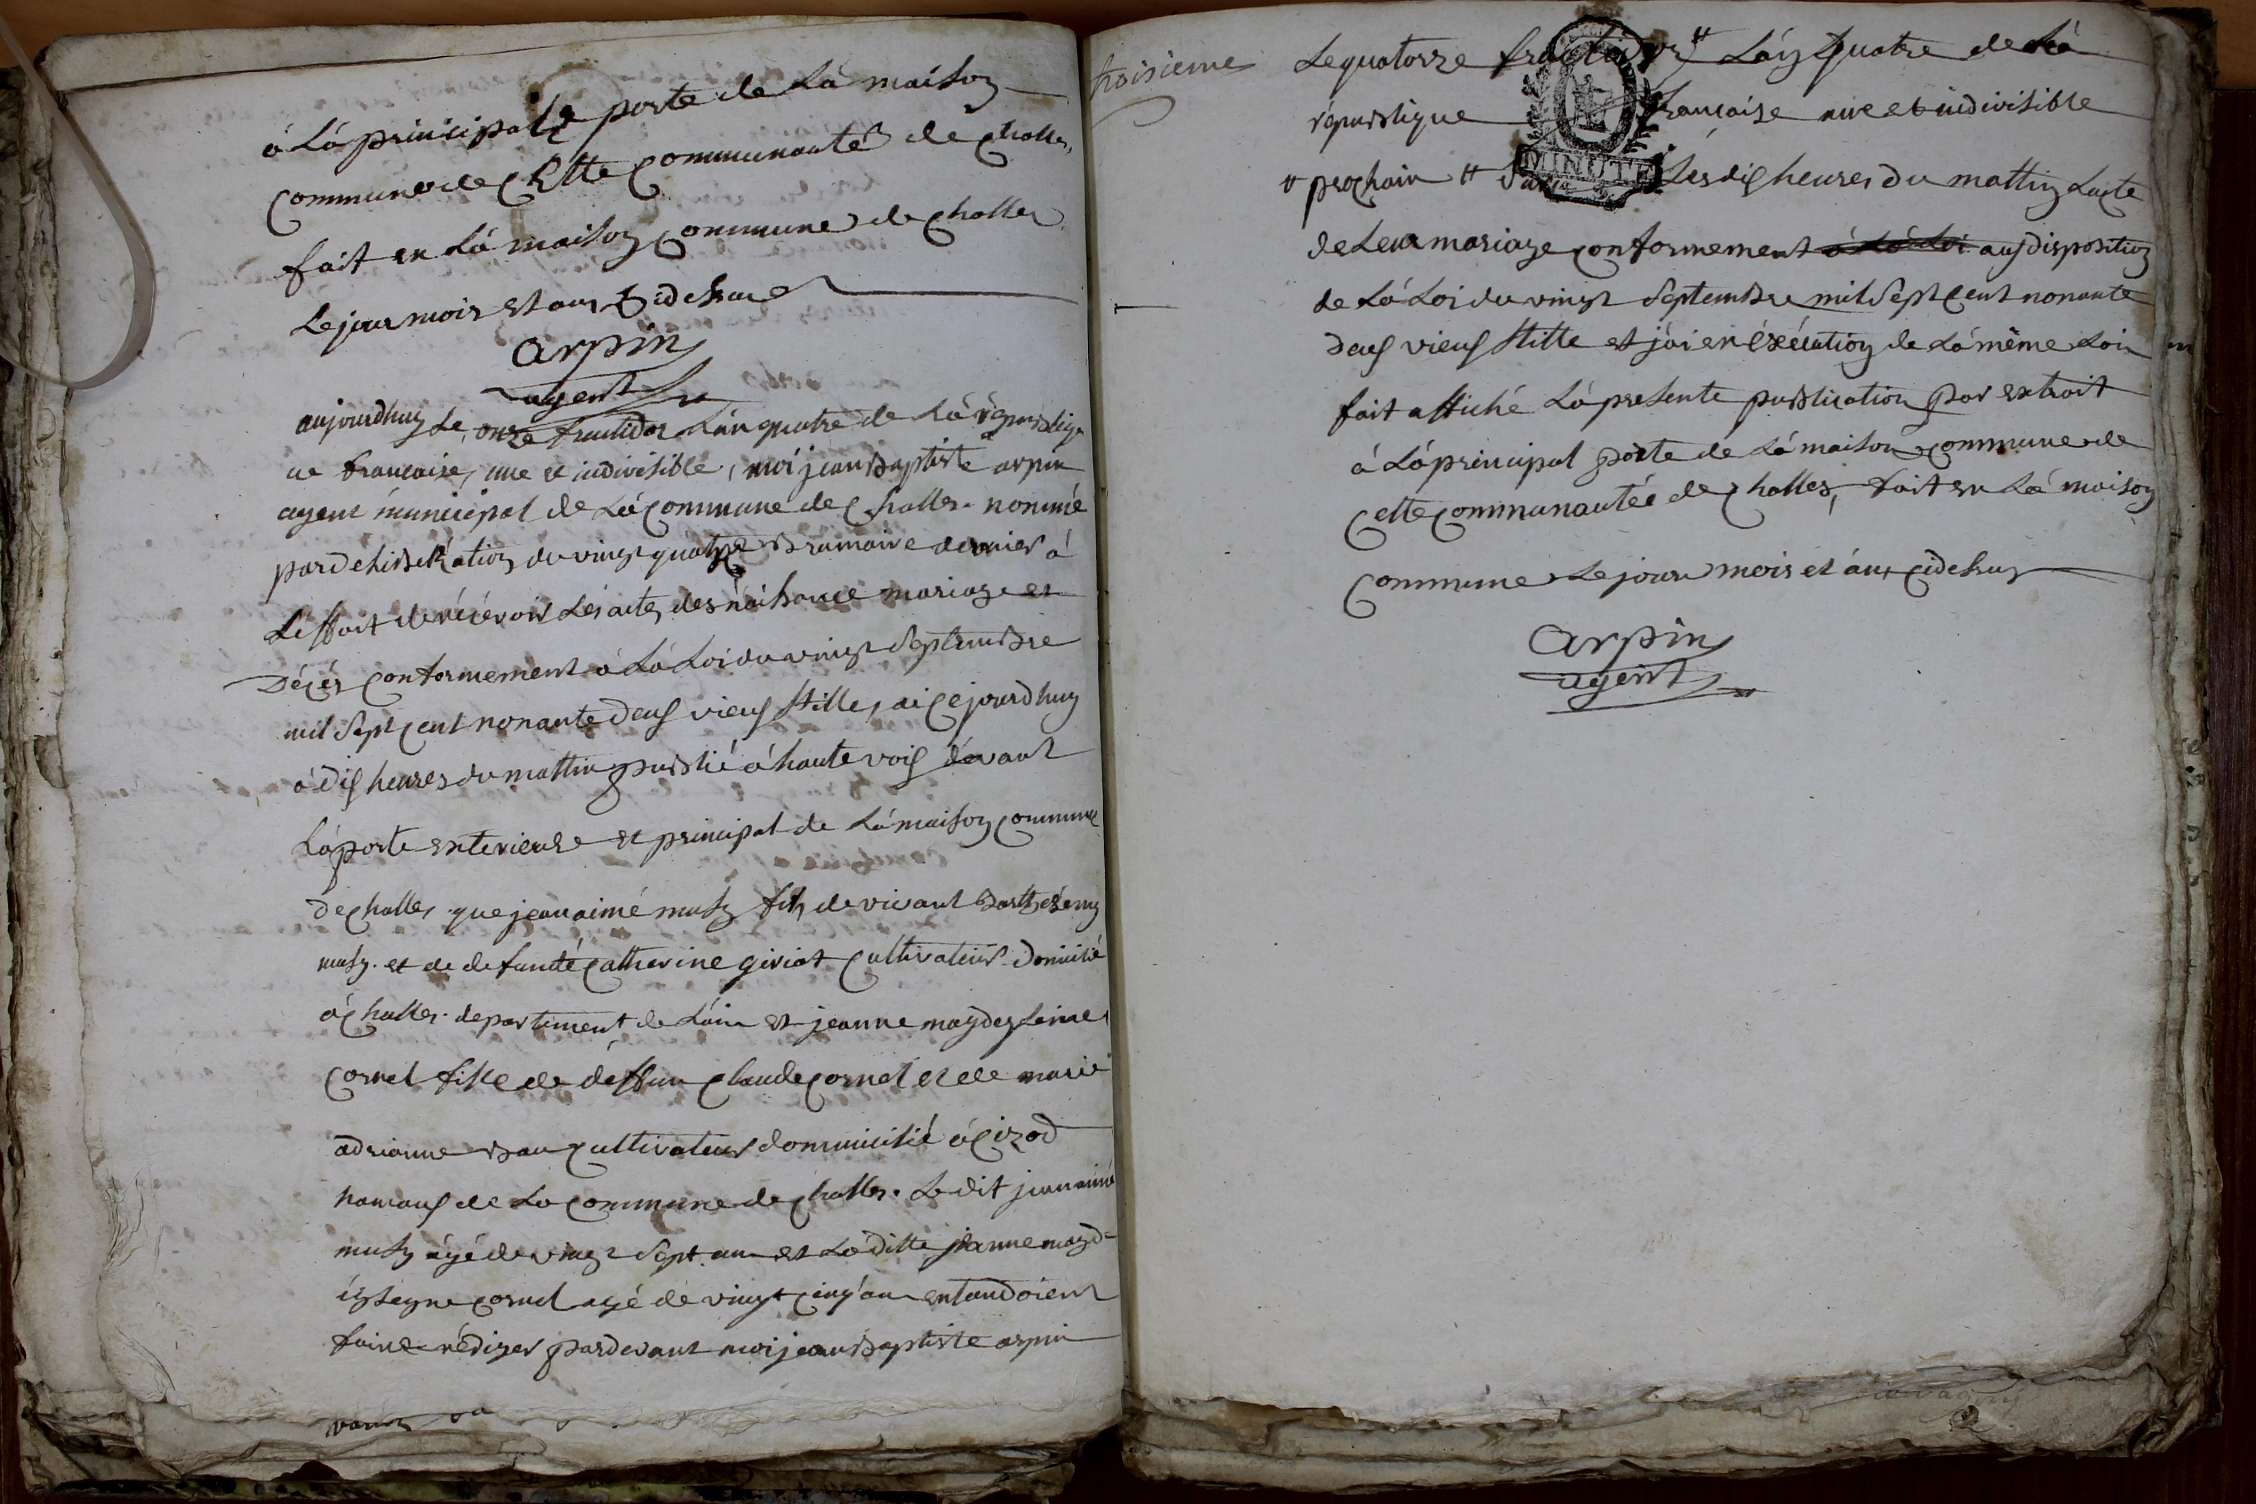 à Là principale porte de Là maison
Commune de Cette Communauté de Challes,
fait en Là maison Commune de Challes
Le jour mois et an Cidessus
arpin
agent
aujourdhuy Le onze fructidor Lan quatre de Là républiq
ue francaise, une et indivisible, moi jean baptiste arpin
agent municipal de Là Commune de Challes nommé
par deliberation du vingt quatre brumaire dernier à
Leffait de récévoir Les actes des naissance mariage et
Décés Conformement à Là Loi du vingt Septembre
mil Sept Cent nonante deux vieux Stille, ai Cejourdhuy
à dix heures du mattin publié à haute voix dévant
Là porte exterieure et principal de Là maison Commune
de Challes que jean aimé musy fils de vivant barthelemy
musy et de defunte Catherine giriat Cultivateur domicilié
à Challes departement de Lain et jeanne magdegleine
Cornet fille de déffun Claude Cornet et de marie
adrianne Cultivateur dommicilié à Cizod
hamaux de La Commune de Challes. Le dit jean aimé
musy agé de vingt Sept an et La ditte jeanne magd=
Cornet agé de vingt Cinq an entandoient
faire rédiger pardevant moi jean baptiste arpin
troisieme
Le quatorze fructidor # Lan quatre de La
république francaise une et indivisible
# prochain # Les dix heures du mattin Lacte
MINUTE
de Leur mariage Conformement à Là Loi aux disposition
de Là Loi du vingt Septembre mil Sept Cent nonante
deux vieux Stille et jai en éxécution de La même Loi
fait affiché Là presente publication par extrait
à Là principal porte de Là maison Commune de
Cette Communautée de Challes, fait en Là maison
Commune Le jour mois et an Cidessus
arpin
agent